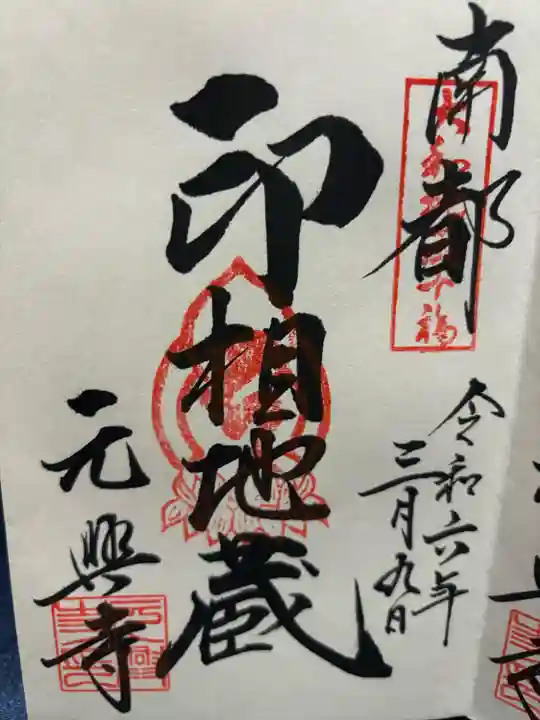 南都
令和六年
三月九日
印相地蔵
元興寺